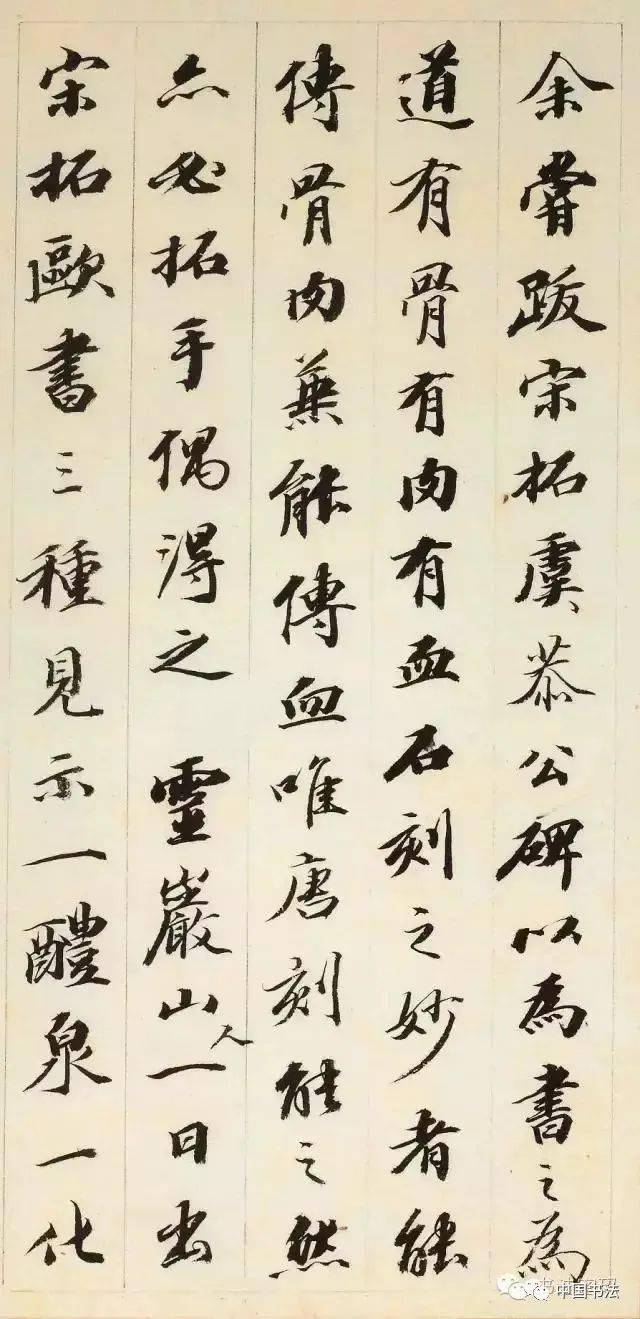 余嘗跋宋拓虞恭公碑以為書之為
道有骨有肉有血石刻之妙者能
傳骨肉兼能傳血唯唐刻能之然
亦必拓手偶得之 靈巖山人一日出
宋拓歐書三種見示一醴泉一化
中国书法